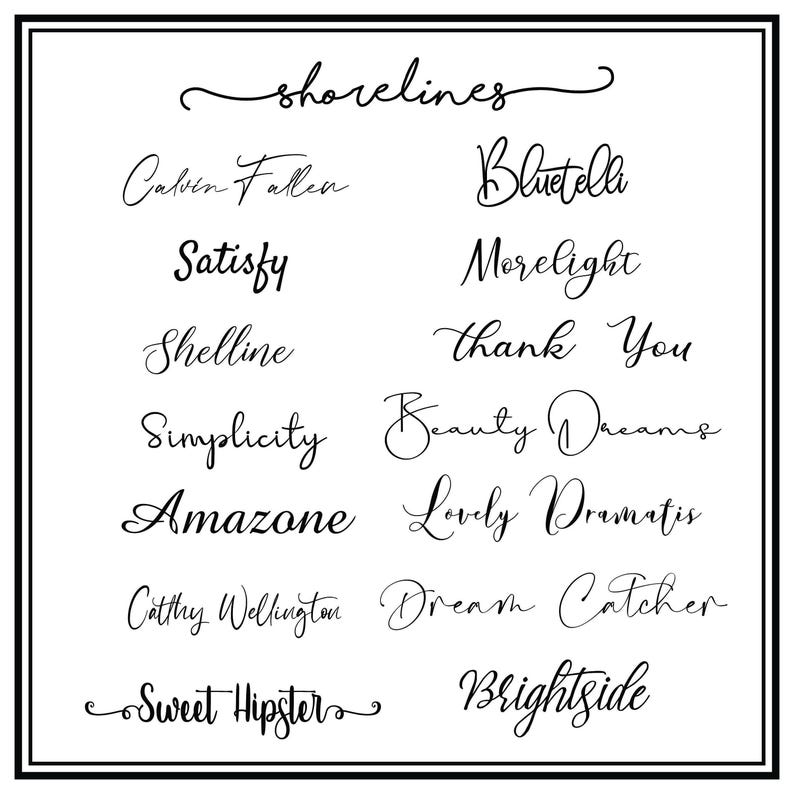 shorelines
Calvin Fallen
Bluetelli
Satisfy
Morelight
Shelline
thank You
Simplicity
Beauty Dreams
Amazone
Lovely Dramatis
Catthy Wellington
Dream Catcher
Sweet Hipster
Brightside